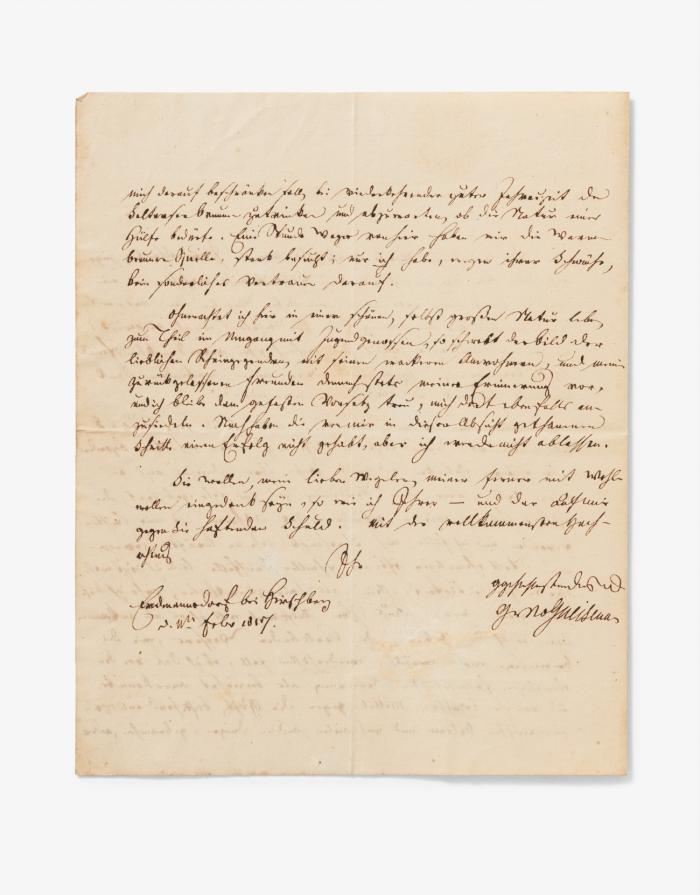 mich darauf beschränken soll, bei wiederkehrender guter Jahreszeit de
Selterwasserbrunnen zu trinken und abzuwarten, ob die Natur einer
Hülfe bedürfe. Eine Stunde Weges von hier haben wir die Warm-
brunner Quelle, stark besucht; nur ich habe, wegen ihrer Schwäche,
kein sonderliches Vertrauen darauf.
Ohnerachtet ich hier in einer schönen, selbst großen Natur lebe,
zum Theil im Umgang mit Jugendgenossen, so schwebt das Bild der
lieblichen Rheingegenden, mit seinen wackeren Anwohnern, und mein
zurückgelassenen Freunden dennoch stets meiner Erinnerung vor,
und ich bleibe dem gefaßten Vorsatz treu, mich dort ebenfalls an-
zusiedeln. Noch haben die von mir in dieser Absicht gethanenen
Schritte einen Erfolg nicht gehabt, aber ich werde nicht ablassen.
Sie wollen, mein lieber Wegeler, meiner ferner mit Wohl-
wollen eingedenk seyn, so wie ich Ihrer — und der auf mir
gegen Sie haftenden Schuld. Mit der vollkommensten Hoch-
achtung
Ihr
Erdmannsdorf bei Hirschberg
d. Febr 1817.
Gr N v Gneisenau